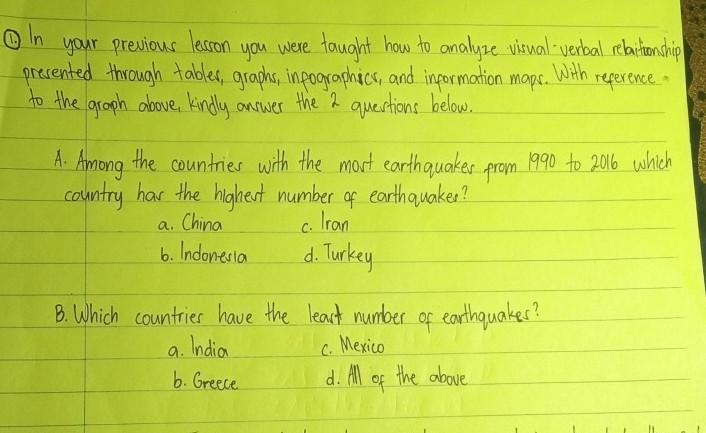 1. In your previous lesson you were taught how to analyze visual-verbal relationship
presented through tables, graphs, infographics, and information maps. With reference
to the graph above, kindly answer the 2 questions below.
A. Among the countries with the most earthquakes from 1990 to 2016 which
country has the highest number of earthquakes?
a. China c. Iran
b. Indonesia d. Turkey
B. Which countries have the least number of earthquakes?
a. India c. Mexico
b. Greece d. All of the above